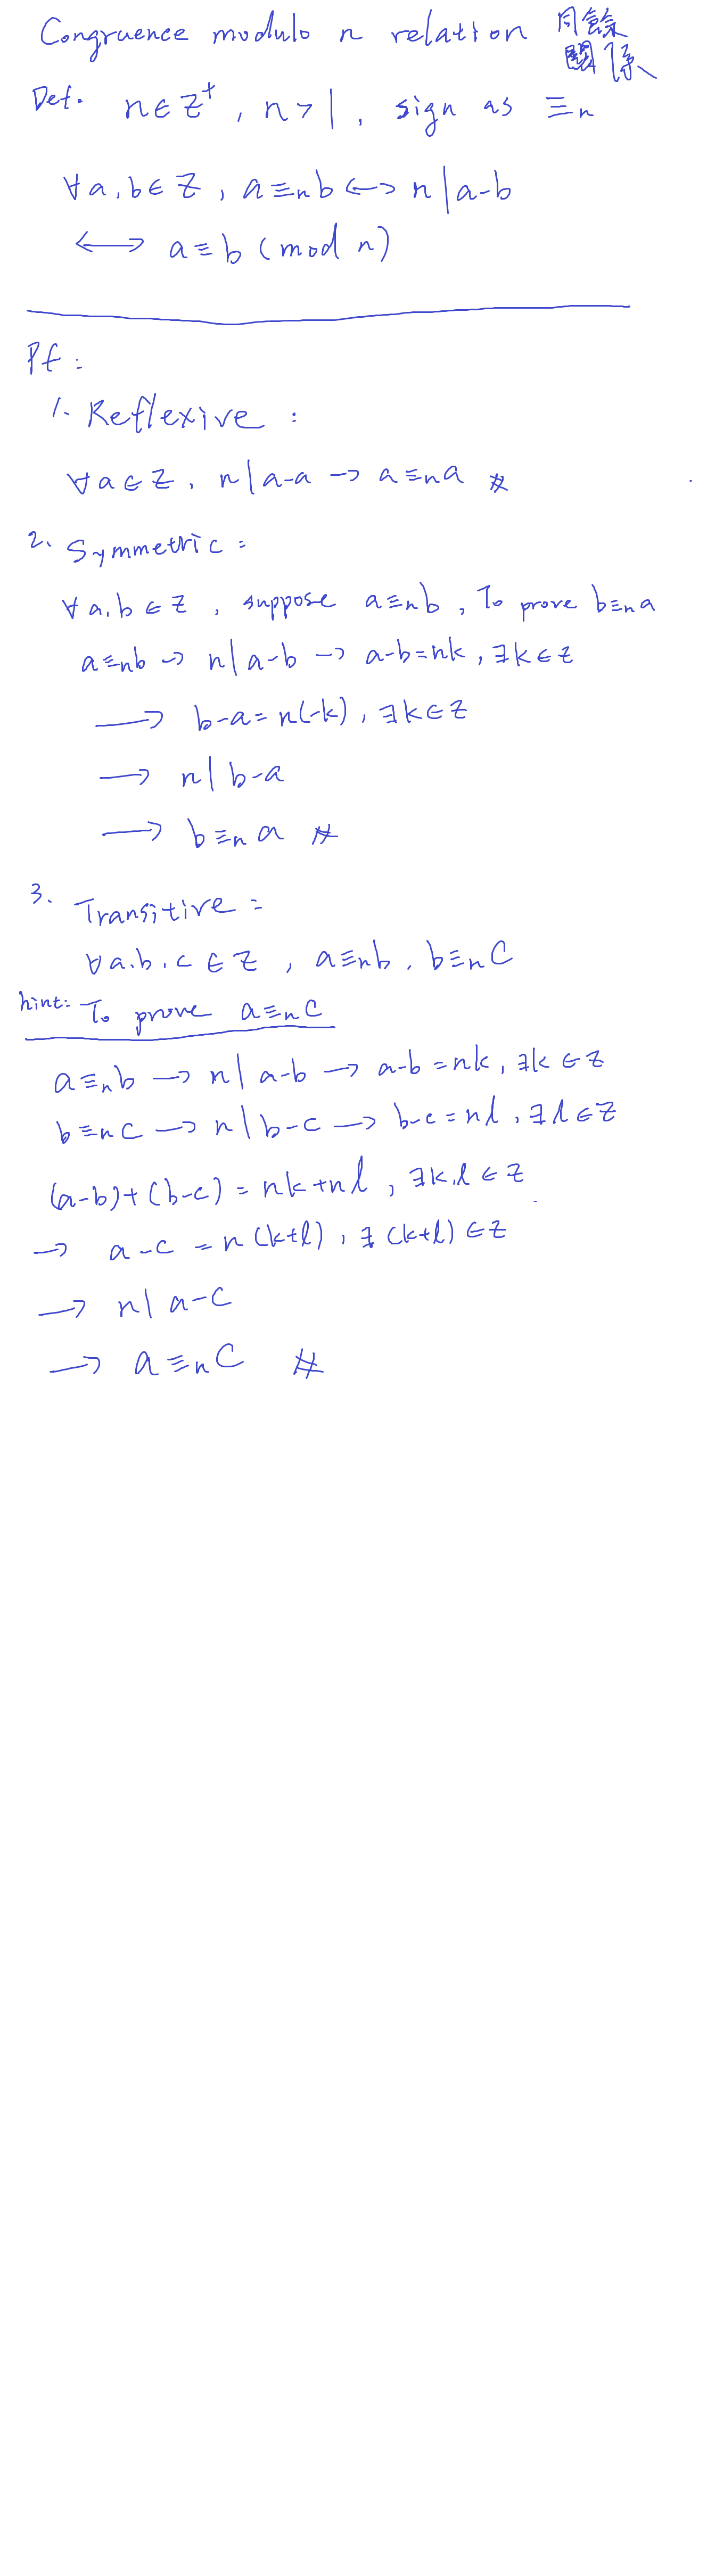 Congruence modulo n relation 同餘
關係
Def. n∈Z⁺, n>1, sign as ≡ₙ
∀a,b∈Z, a≡ₙb ↔ n|a-b
↔ a≡b (mod n)
Pf:
1. Reflexive:
∀a∈Z, n|a-a → a≡ₙa #
2. Symmetric:
∀a,b∈Z, suppose a≡ₙb, To prove b≡ₙa
a≡ₙb → n|a-b → a-b=nk, ∃k∈Z
→ b-a=n(-k), ∃k∈Z
→ n|b-a
→ b≡ₙa #
3. Transitive:
∀a,b,c∈Z, a≡ₙb, b≡ₙc
hint: To prove a≡ₙc
a≡ₙb → n|a-b → a-b=nk, ∃k∈Z
b≡ₙc → n|b-c → b-c=nl, ∃l∈Z
(a-b)+(b-c)=nk+nl, ∃k,l∈Z
→ a-c=n(k+l), ∃(k+l)∈Z
→ n|a-c
→ a≡ₙc #